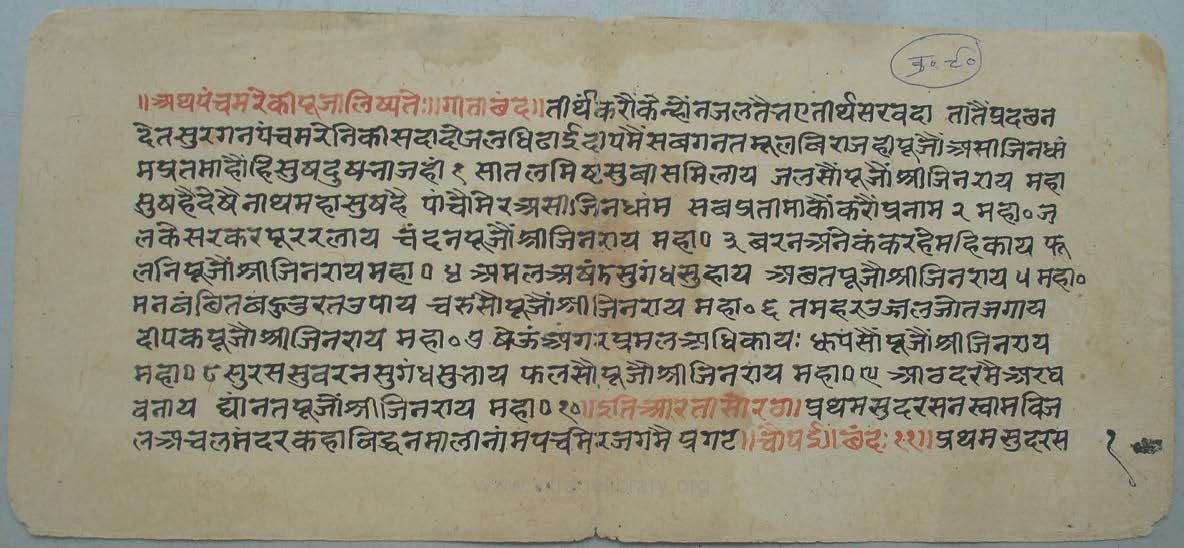 क्र॰ ८०
॥अथपंचमेरकीपूजालिष्यतेः॥गीताछंद॥तीर्थंकरौकेन्हौंनजलतैनएतीर्थसरवदा तातैंप्रदछन
देतसुरगनपंचमेरनिकीसदादोजलधिढाईदीपमैंसबगनतमूलविराजहीपूजौंअसीजिनधां
मप्रतमाहौंहिसुषदुषनाजहीं १ सीतलमिष्टसुबासमिलाय जलसौंपूजौंश्रीजिनराय महा
सुषहैदेषैनाथमहासुषहै पांचौमेरअसीजिनधांम सबप्रतीमाकौंकरौप्रनाम २ महा॰ज
लकेसरकरपूररलाय चंदनपूजौंश्रीजिनराय महा॰ ३ बरनअनेकंकरहेमहिकाय फू
लनिपूजौंश्रीजिनरायमहा॰ ४ अमलअषंडसुगंधसुहाय अछतपूजौश्रीजिनराय ५ महा॰
मनबंछितबहुतुरतउपाय चरुसौंपूजौंश्रीजिनराय महा॰ ६ तमहरउज्जलजोतजगाय
दीपकपूजौश्रीजिनराय महा॰ ७ षेऊंअंगरप्रमलअधिकायः धूपसौंपूजौंश्रीजिनराय
महा॰ ८ सुरससुवरनसुगंधसुनाय फलसौंपूजौश्रीजिनराय महा॰ ९ आठदरमैअरघ
बनाय द्यांनतपूजौंश्रीजिनराय महा॰ १०॥इतिआरतीसोरठा॥प्रथमसुदरसनस्वामविज
लअचलमंदरकहाविद्धनमालीनांमपंचमेरजगमैप्रगट॥चौपई॥छंदः ११॥प्रथमसुदरस
१